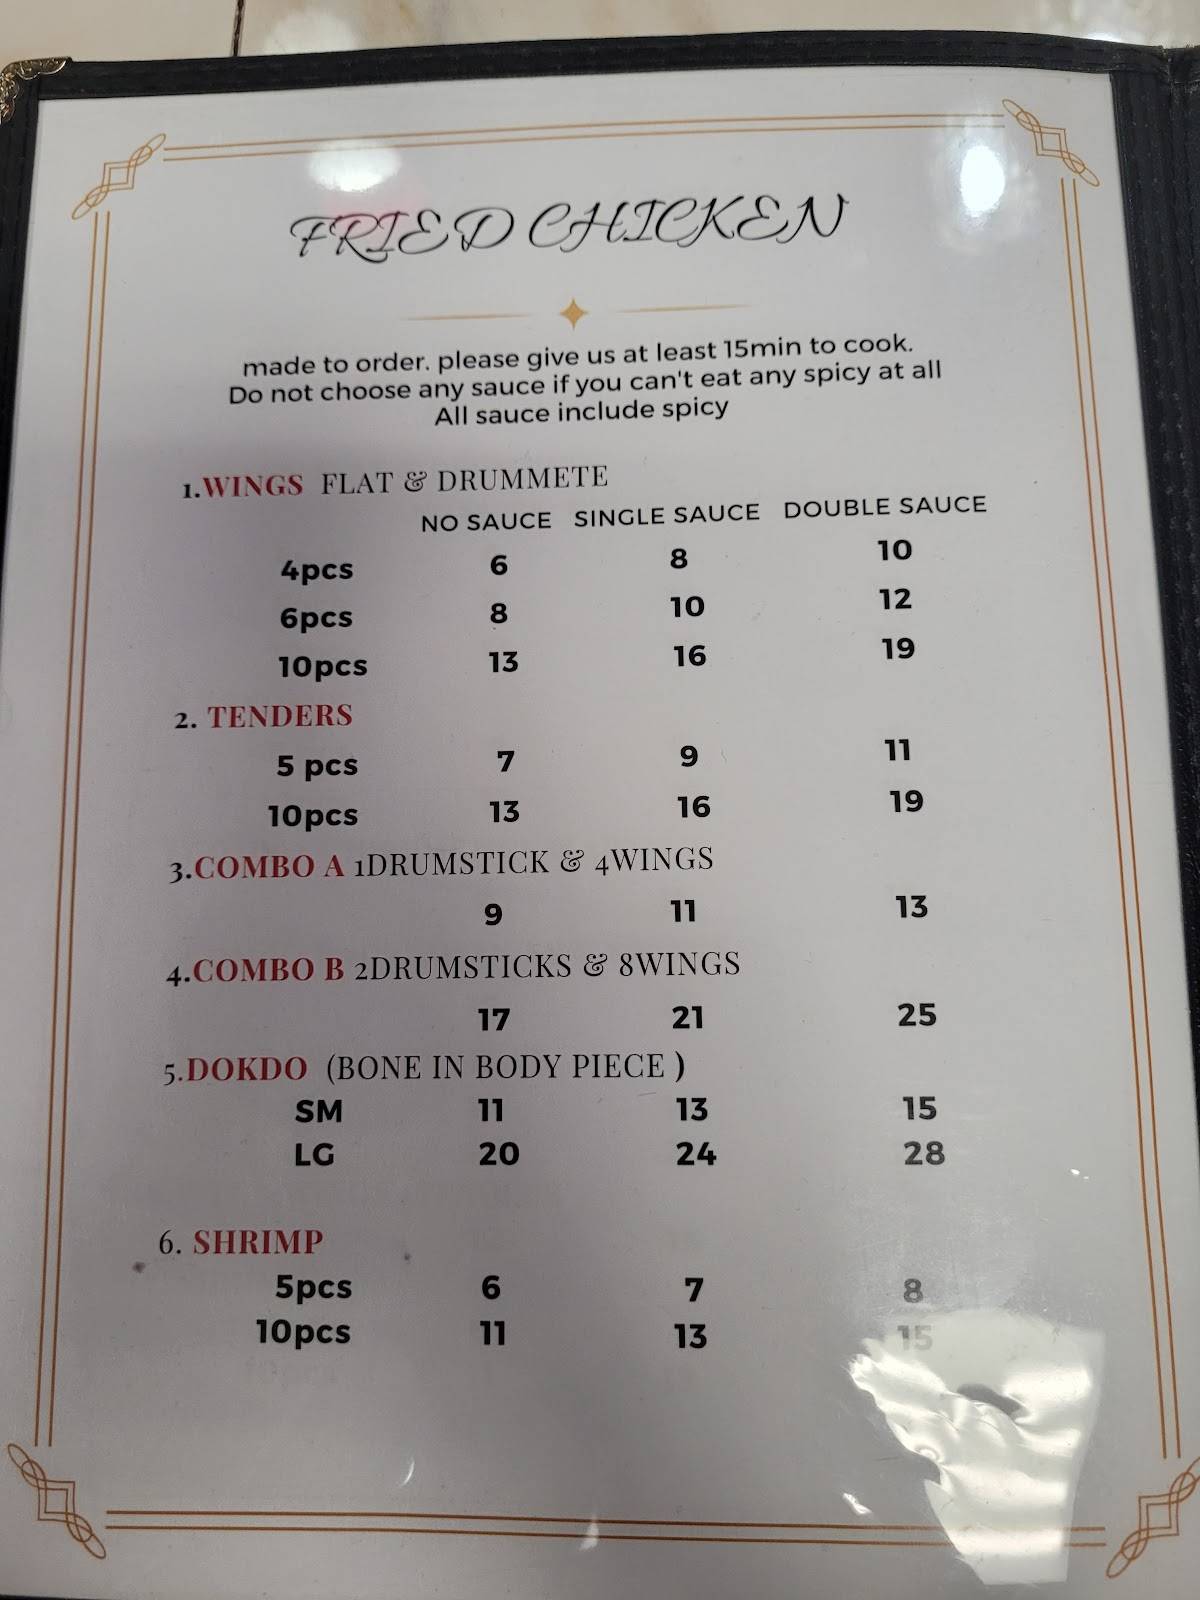 FRIED CHICKEN
made to order. please give us at least 15min to cook.
Do not choose any sauce if you can't eat any spicy at all
All sauce include spicy
1.WINGS FLAT & DRUMMETE
NO SAUCE SINGLE SAUCE DOUBLE SAUCE
4pcs 6 8 10
6pcs 8 10 12
10pcs 13 16 19
2. TENDERS
5 pcs 7 9 11
10pcs 13 16 19
3.COMBO A 1DRUMSTICK & 4WINGS
9 11 13
4.COMBO B 2DRUMSTICKS & 8WINGS
17 21 25
5.DOKDO (BONE IN BODY PIECE )
SM 11 13 15
LG 20 24 28
6. SHRIMP
5pcs 6 7 8
10pcs 11 13 15